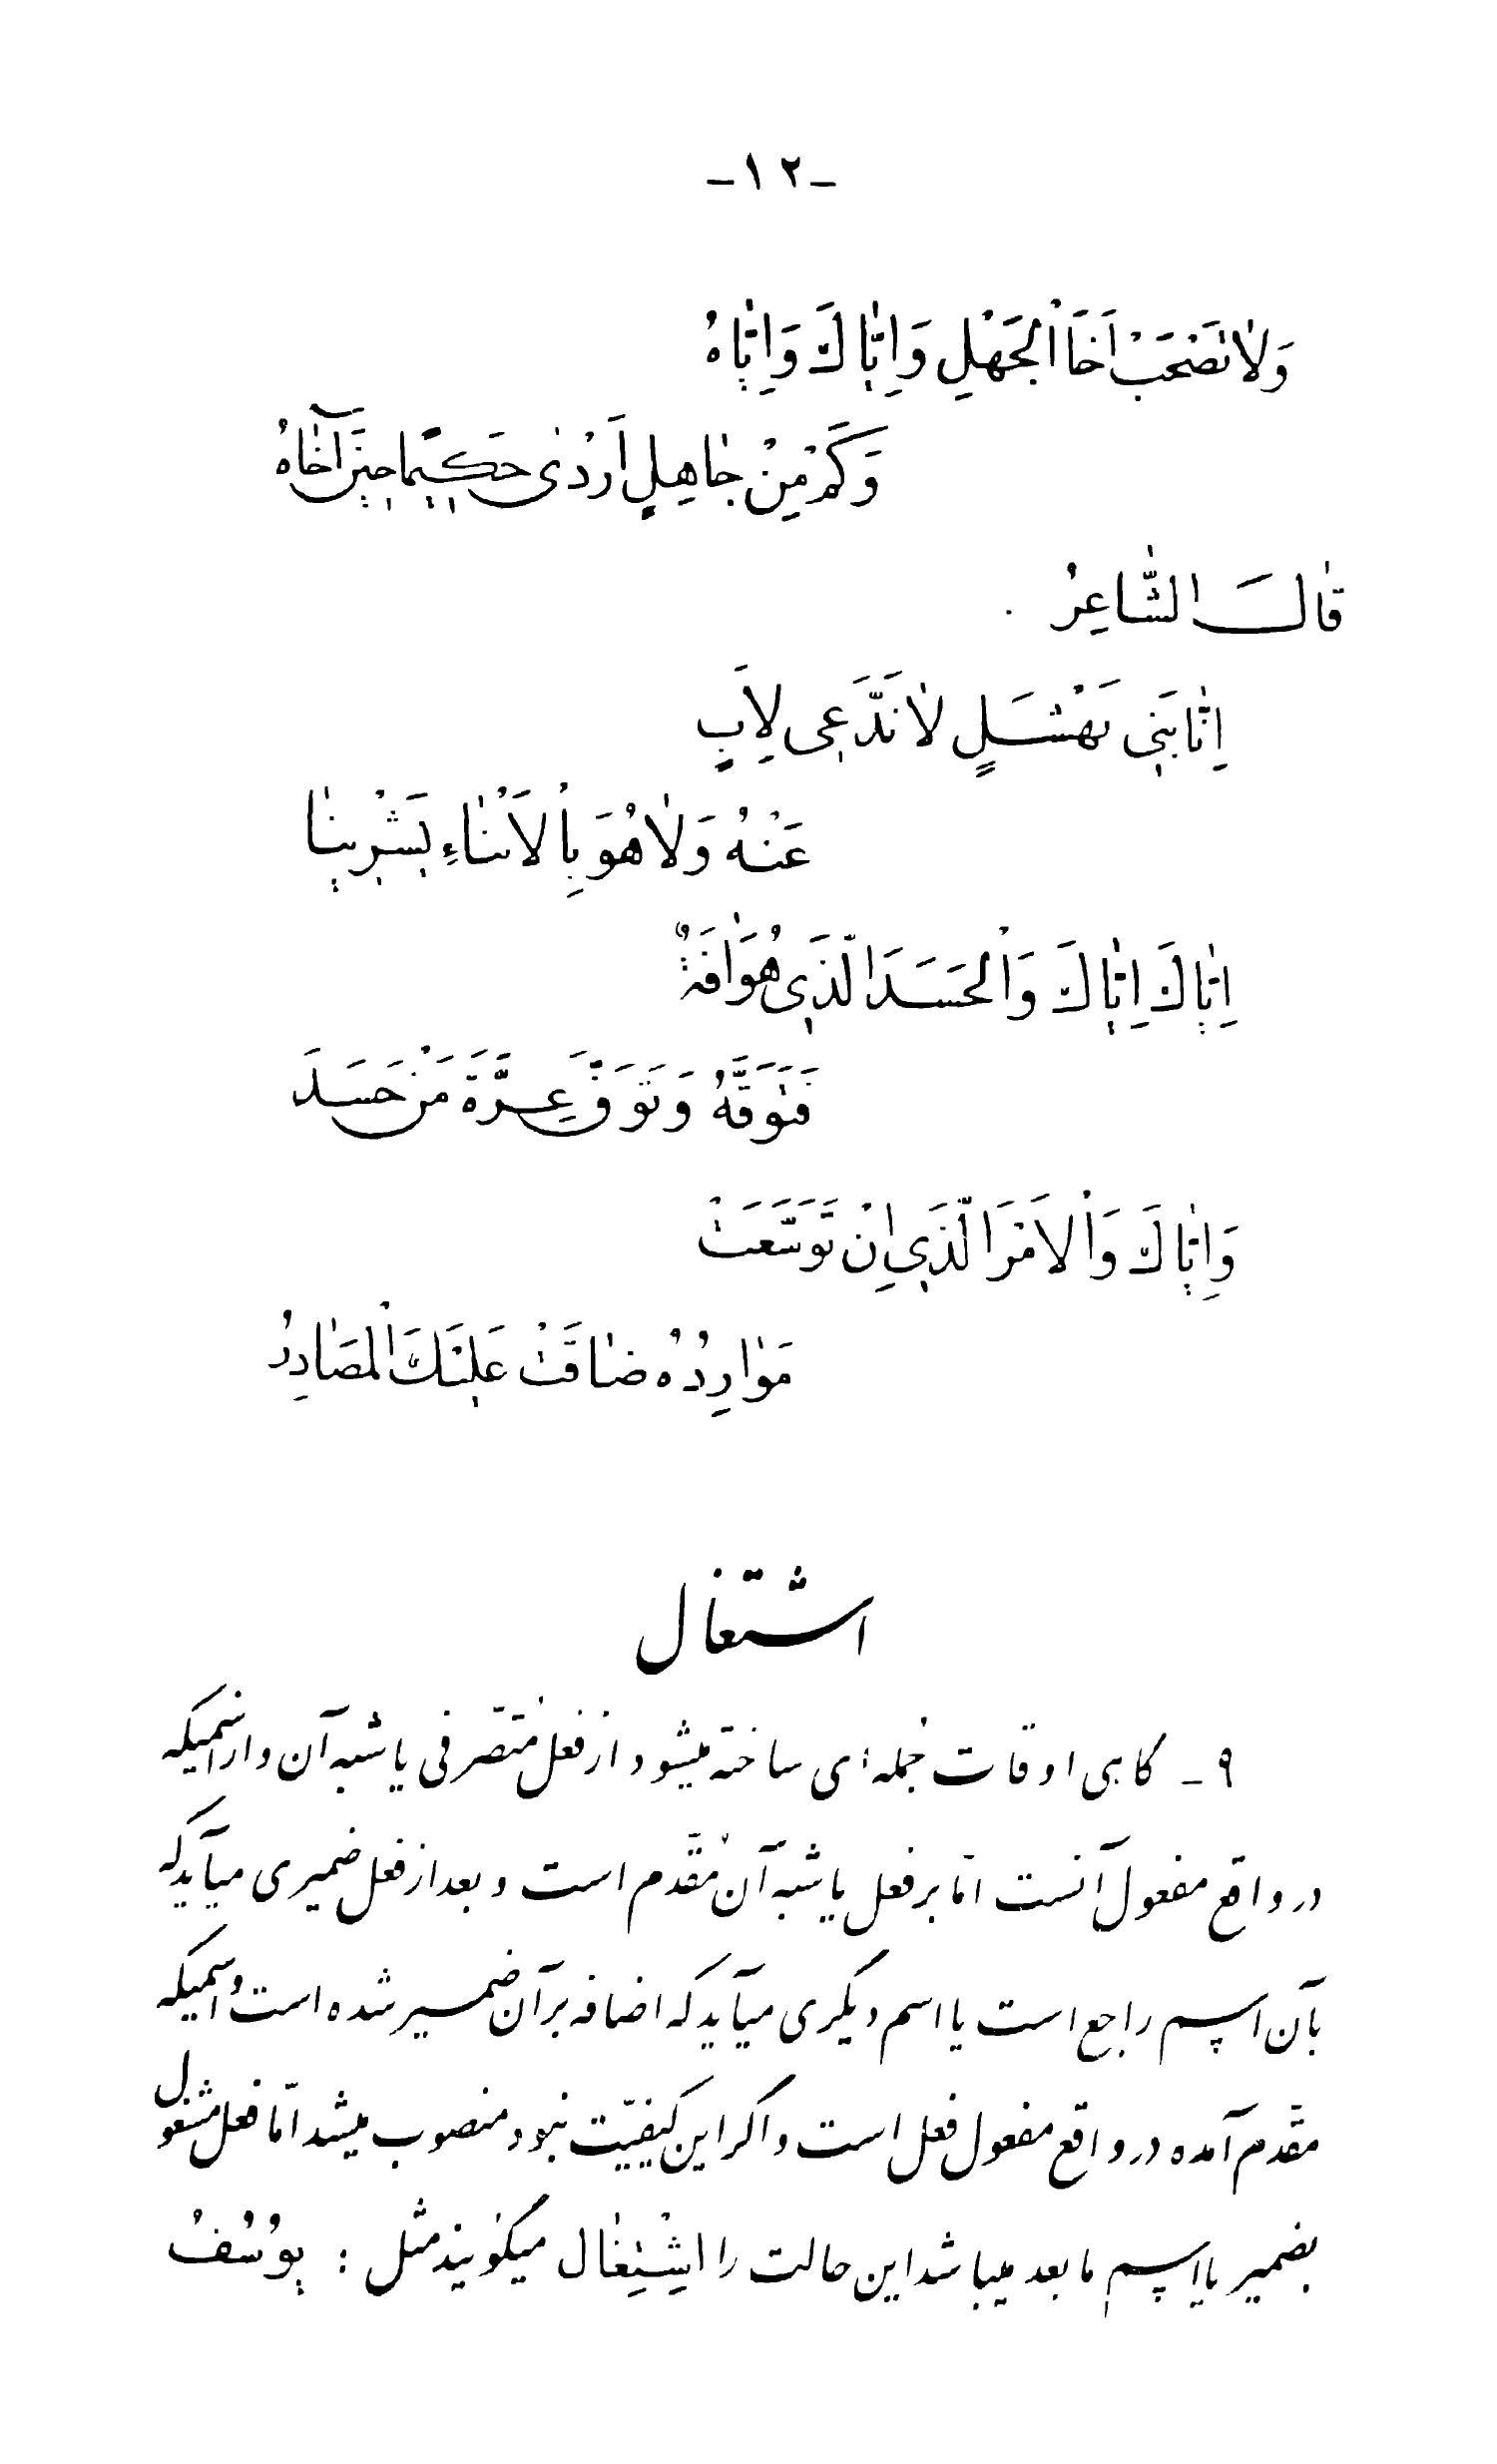 -۱۲-
وَلاٰتَصْحَبْ اَخَاَ الْجَهْلِ وَاِيّٰاكَ وَاِيّٰاهُ
وَكَمْ مِنْ جٰاهِلٍ اَرْدٰى حَكيٖماً حيٖنَ آخٰاهُ
قٰالَ الشّٰاعِرُ
اِنّٰا بَنيٖ نَهْشَلٍ لاٰ نَدَّعيٖ لِاَبٍ
عَنْهُ وَلاٰ هُوَ بِالْاَبْنٰاءِ يَشْريٖنٰا
اِيّٰاكَ اِيّٰاكَ وَالْحَسَدَ الَّذيٖ هُوَ اٰفَةٌ
فَتَوَقَّهُ وَتَوَقَّ غِرَّةَ مَنْ حَسَدَ
وَاِيّٰاكَ وَالْاَمْرَ الَّذيٖ اِنْ تَوَسَّعَتْ
مَوٰارِدُهُ ضٰاقَتْ عَلَيْكَ الْمَصٰادِرُ
اشتغال
۹ - گاهی اوقات جُمله‌ای ساخته میشود از فعل مُتصّرفی یا شبه آن و از اسمیکه
در واقع مفعول آنست امّا بر فعل یا شبه آن مُقّدم است و بعد از فعل ضمیری میآید که
بآن اسم راجع است یا اسم دیگری میآید که اضافه بر آن ضمیر شده است و اسمیکه
مقّدم آمده در واقع مفعول فعل است و اگر این کیفیّت نبود منصوب میشد امّا فعل مشغول
بضمیر یا اسم مابعد میباشد این حالت را اِشْتِغٰال میگویند مثل : يوُسُفُ